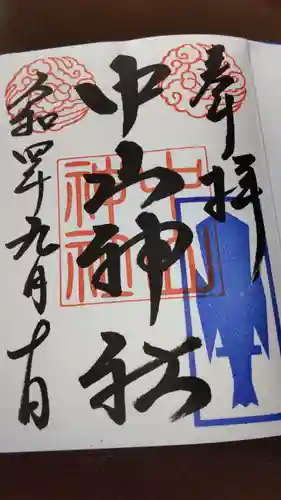 奉拝
中山神社
令和四年九月十日
中山
神社